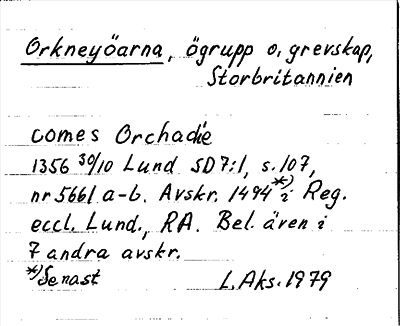 Orkneyöarna, ögrupp o. grevskap,
Storbritannien
comes Orchadie
1356 30/10 Lund SD 7:1, s. 107,
nr 5661 a-b. Avskr. 1494 *) i Reg.
eccl. Lund., RA. Bel. även i
7 andra avskr.
*) Senast
L. Aks. 1979